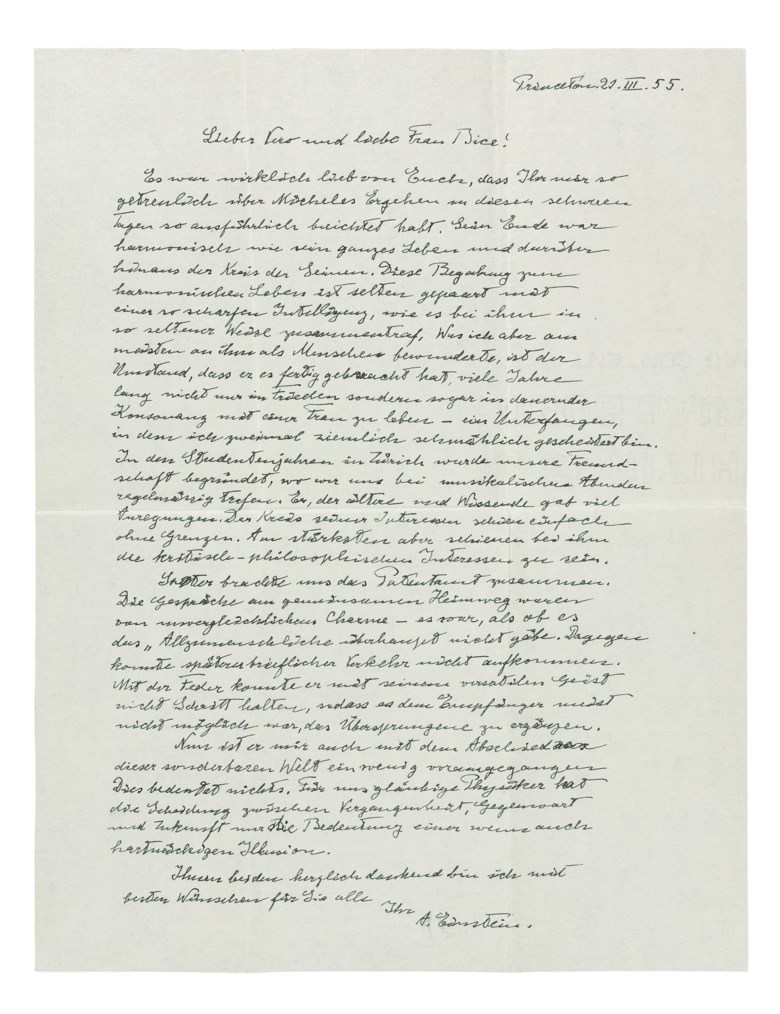 Princeton. 21. III. 55.
Lieber Vero und liebe Frau Bice!
Es war wirklich lieb von Euch, dass Ihr mir so
getreulich über Micheles Ergehen in diesen schweren
Tagen so ausführlich berichtet habt. Sein Ende war
harmonisch wie sein ganzes Leben und darüber
hinaus der Kreis der Seinen. Diese Begabung zum
harmonischen Leben ist selten gepaart mit
einer so scharfen Intelligenz, wie es bei ihm in
so seltener Weise zusammentraf. Was ich aber am
meisten an ihm als Menschen bewunderte, ist der
Umstand, dass er es fertig gebracht hat, viele Jahre
lang nicht nur im Frieden sondern sogar in dauernder
Konsonanz mit einer Frau zu leben – ein Unterfangen,
in dem ich zweimal ziemlich schmählich gescheitert bin.
In den Studentenjahren in Zürich wurde unsere Freund-
schaft begründet, wo wir uns bei musikalischen Abenden
regelmässig trafen. Er, der ältere und Wissende gab viel
Anregungen. Der Kreis seiner Interessen schien einfach
ohne Grenzen. Am stärksten aber schienen bei ihm
die kritisch-philosophischen Interessen zu sein.
Später brachte uns das Patentamt zusammen.
Die Gespräche am gemeinsamen Heimweg waren
von unvergleichlichem Charme – es war, als ob es
das „Allzumenschliche überhaupt nicht gäbe. Dagegen
konnte später brieflicher Verkehr nicht aufkommen.
Mit der Feder konnte er mit seinem versatilen Geist
nicht Schritt halten, sodass es dem Empfänger meist
nicht möglich war, das Übersprungene zu ergänzen.
Nun ist er mir auch mit dem Abschied von
dieser sonderbaren Welt ein wenig vorangegangen
Dies bedeutet nichts. Für uns gläubige Physiker hat
die Scheidung zwischen Vergangenheit, Gegenwart
und Zukunft nur die Bedeutung einer wenn auch
hartnäckigen Illusion.
Ihnen beiden herzlich dankend bin ich mit
besten Wünschen für Sie alle
Ihr
A. Einstein.